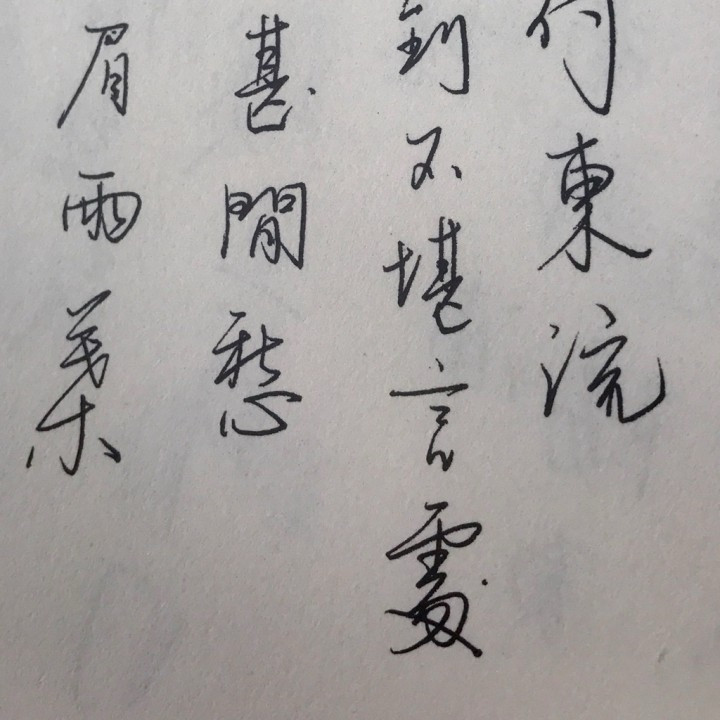 付東流
到不堪言處
甚閒愁
眉兩葉